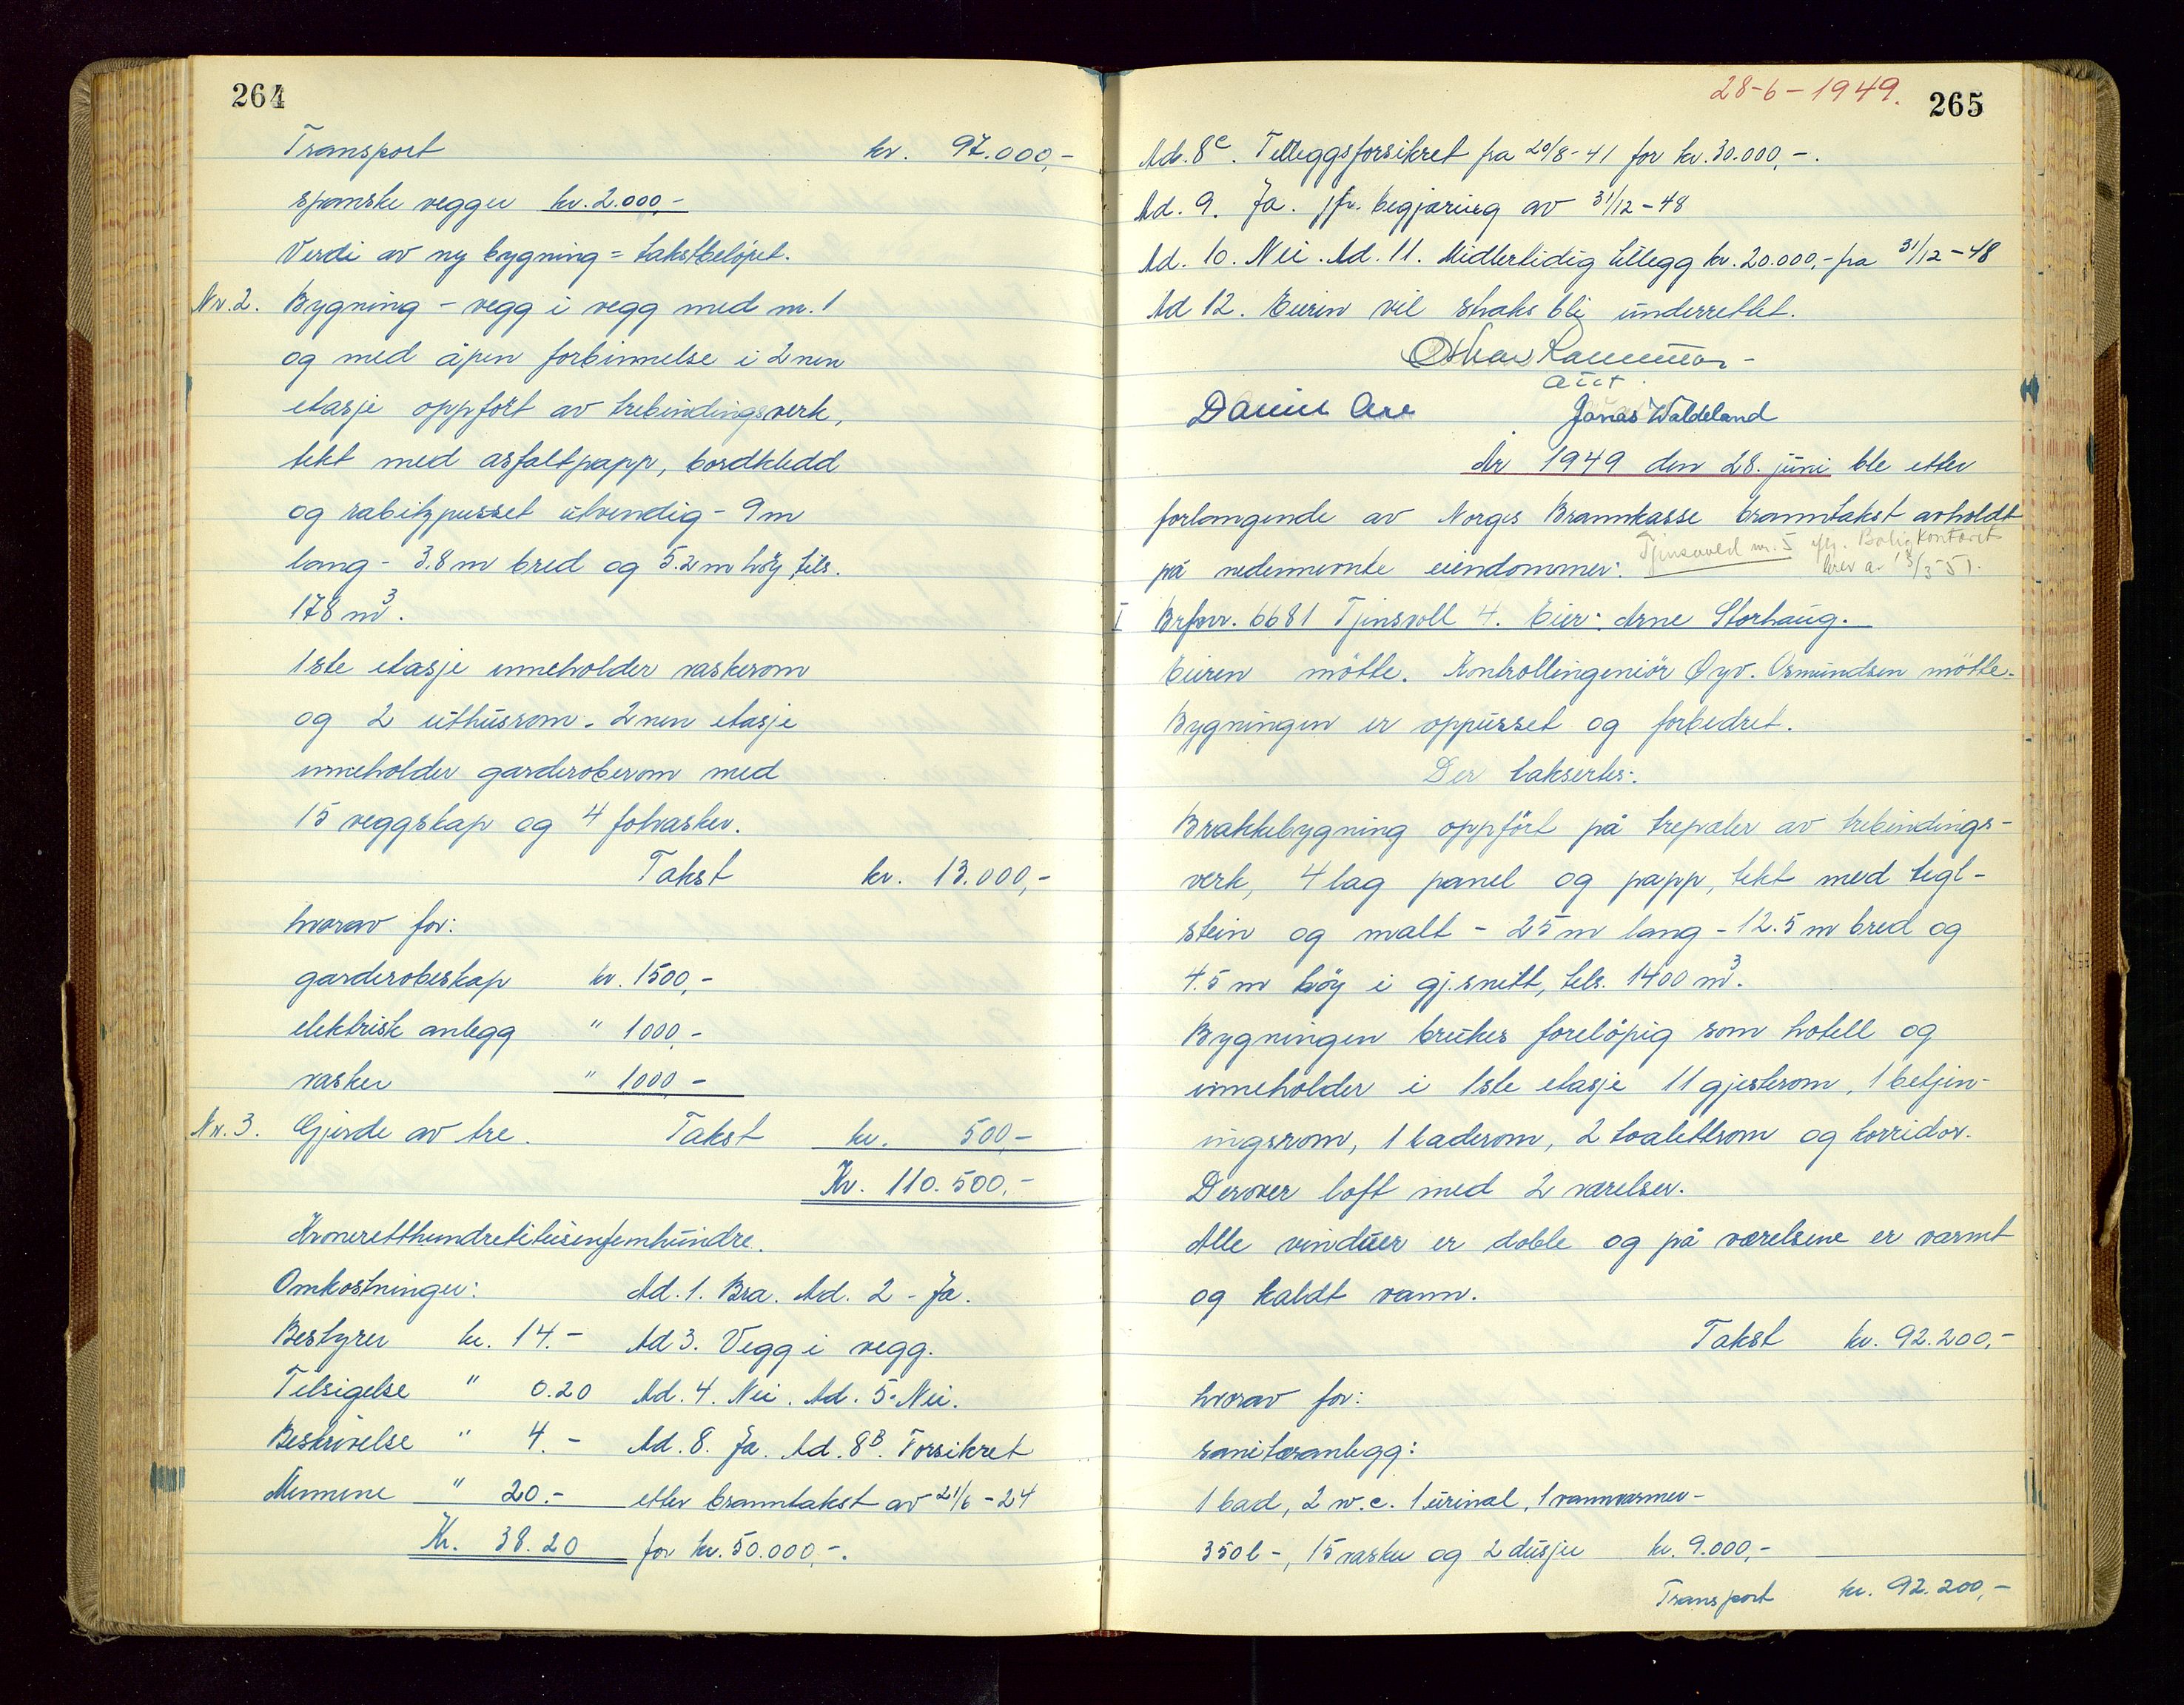 264
Transport kr. 97.000,-
spanske vegger kr. 2.000,-
Verdi av ny bygning = takstbeløpet.
Nr. 2. Bygning - vegg i vegg med nr. 1
og med åpen forbinnelse i 2nen
etasje oppført av trebindingsverk,
tekt med asfaltpapp, bordkledd
og rabitzpusset utvendig - 9 m
lang - 3.8 m bred og 5.2 m høy tils.
178 m³.
1ste etasje inneholder vaskerom
og 2 uthusrom. 2nen etasje
inneholder garderoberom med
15 veggskap og 4 fotvasker.
Takst kr. 13.000,-
hvorav for:
garderobeskap kr. 1500,-
elektrisk anlegg " 1000,-
vasker " 1000 -
Nr. 3. Gjerde av tre. Takst kr. 500,-
Kr. 110.500,-
Kroneretthundretitusenfemhundre.
Omkostninger: Ad. 1. Bra. Ad. 2 - Ja.
Bestyrer kr. 14.- Ad 3. Vegg i vegg.
Tilsigelse " 0.20 Ad. 4. Nei. Ad. 5. Nei.
Beskrivelse " 4.- Ad. 8. Ja. Ad. 8B. Forsikret
Mennene " 20.- etter branntakst av 21/6 - 24
Kr. 38.20 for kr. 50.000,-.
28-6-1949. 265
Ad. 8c. Tilleggsforsikret fra 20/8-41 for kr. 30.000,-.
Ad. 9. Ja. jfr. begjæring av 31/12-48
Ad. 10. Nei. Ad. 11. Midlertidig tillegg kr. 20.000,- fra 31/12-48
Ad 12. Eieren vil straks bli underrettet.
Daniel Jonas Waldeland
År 1949 den 28. juni ble etter
forlangende av Norges Brannkasse branntakst avholdt
på nedennevnte eiendommer: Tjensvold nr. 5 iflg. Boligkontoret
brev a. 13/3-51.
I Brfnr. 6681 Tjensvoll 4. Eier: Arne Storhaug.
Eieren møtte. Kontrollingeniør Øyv. Osmundsen møtte.
Bygningen er oppusset og forbedret.
Der takseres:
Brakkebygning oppført på trepæler av trebindings-
verk, 4 lag panel og papp, tekt med tegl-
stein og malt - 25 m lang - 12.5 m bred og
4.5 m høy i gj.snitt, tils. 1400 m³.
Bygningen brukes foreløpig som hotell og
inneholder i 1ste etasje 11 gjesterom, 1 betjen-
ingsrom, 1 baderom, 2 toalettrom og korridor.
Derover loft med 2 værelser.
Alle vinduer er doble og på værelsene er varmt
og kaldt vann.
Takst kr. 92.200,-
hvorav for:
sanitæranlegg:
1 bad, 2 w.c. 1 urinal, 1 vannvarmer-
350 l -, 15 vasker og 2 dusjer kr. 9.000,-
Transport kr. 92.200,-